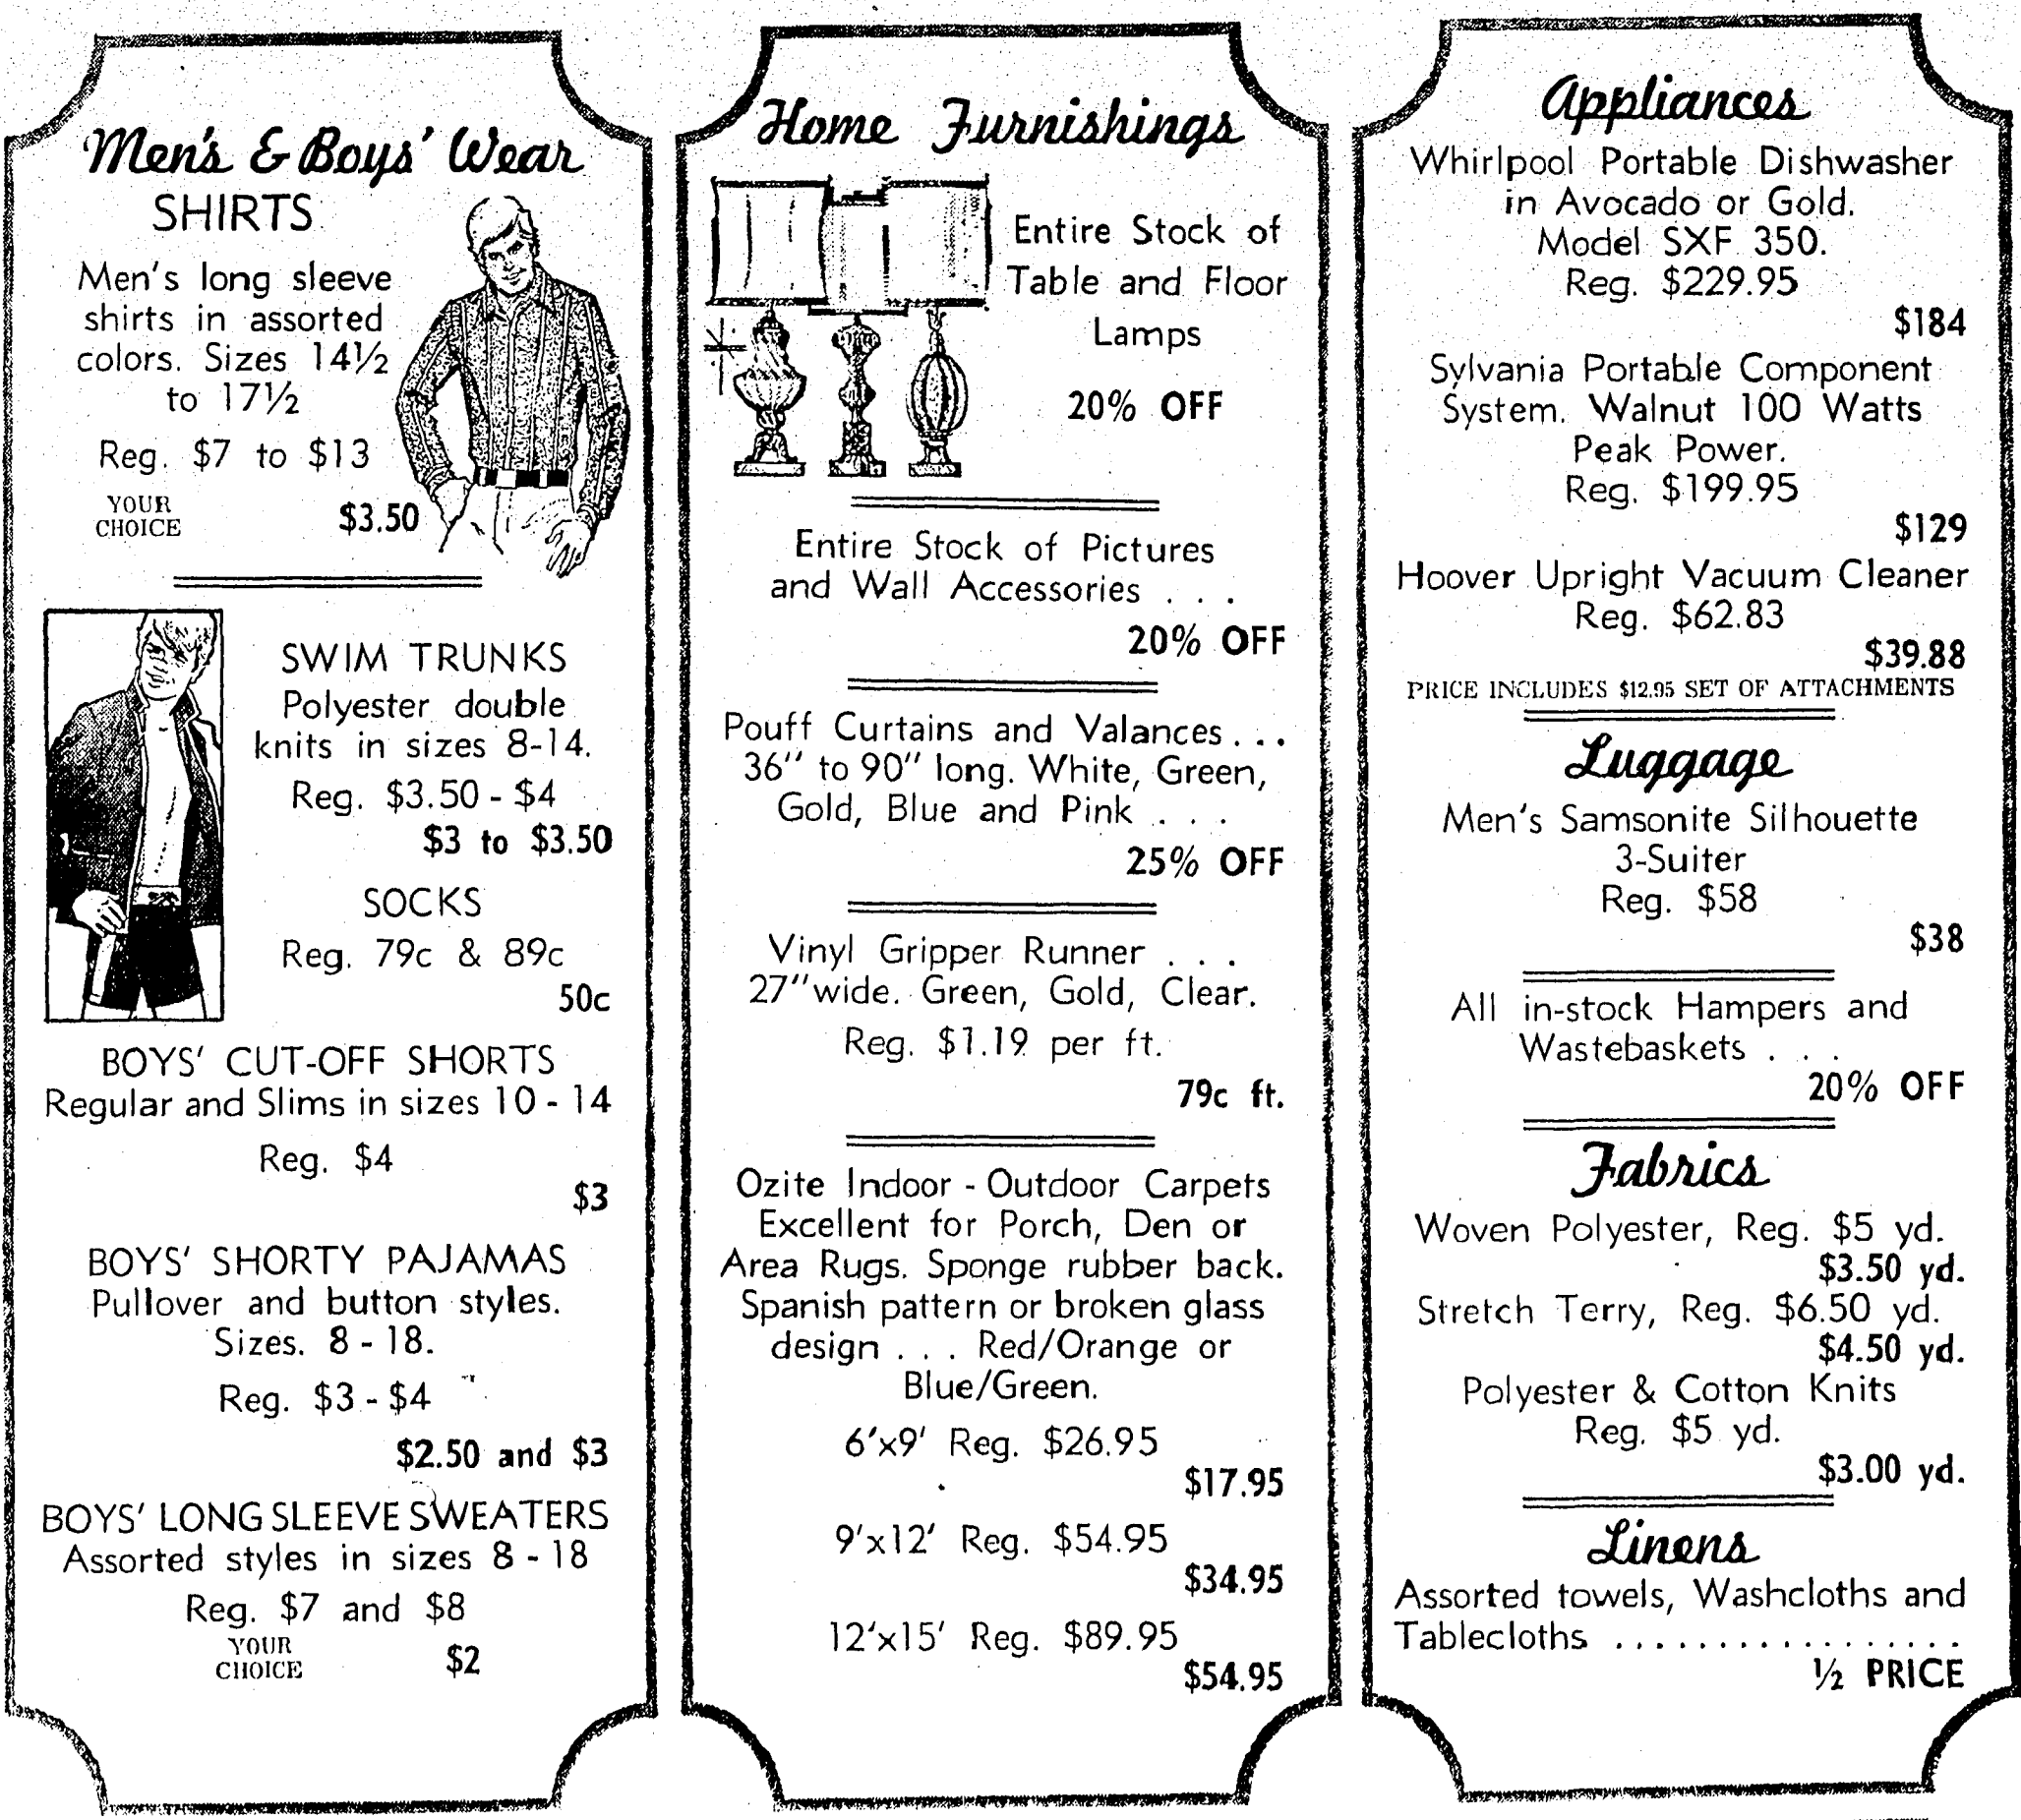 Men's & Boys' Wear
SHIRTS
Men's long sleeve
shirts in assorted
colors. Sizes 14½
to 17½
Reg. $7 to $13
YOUR
CHOICE
$3.50
SWIM TRUNKS
Polyester double
knits in sizes 8-14.
Reg. $3.50 - $4
$3 to $3.50
SOCKS
Reg. 79c & 89c
50c
BOYS' CUT-OFF SHORTS
Regular and Slims in sizes 10 - 14
Reg. $4
$3
BOYS' SHORTY PAJAMAS
Pullover and button styles.
Sizes. 8 - 18.
Reg. $3 - $4
$2.50 and $3
BOYS' LONG SLEEVE SWEATERS
Assorted styles in sizes 8 - 18
Reg. $7 and $8
YOUR
CHOICE
$2
Home Furnishings
Entire Stock of
Table and Floor
Lamps
20% OFF
Entire Stock of Pictures
and Wall Accessories . . .
20% OFF
Pouff Curtains and Valances . . .
36" to 90" long. White, Green,
Gold, Blue and Pink . . .
25% OFF
Vinyl Gripper Runner . . .
27" wide. Green, Gold, Clear.
Reg. $1.19 per ft.
79c ft.
Ozite Indoor - Outdoor Carpets
Excellent for Porch, Den or
Area Rugs. Sponge rubber back.
Spanish pattern or broken glass
design . . . Red/Orange or
Blue/Green.
6'x9' Reg. $26.95
$17.95
9'x12' Reg. $54.95
$34.95
12'x15' Reg. $89.95
$54.95
Appliances
Whirlpool Portable Dishwasher
in Avocado or Gold.
Model SXF 350.
Reg. $229.95
$184
Sylvania Portable Component
System. Walnut 100 Watts
Peak Power.
Reg. $199.95
$129
Hoover Upright Vacuum Cleaner
Reg. $62.83
$39.88
PRICE INCLUDES $12.95 SET OF ATTACHMENTS
Luggage
Men's Samsonite Silhouette
3-Suiter
Reg. $58
$38
All in-stock Hampers and
Wastebaskets . . .
20% OFF
Fabrics
Woven Polyester, Reg. $5 yd.
$3.50 yd.
Stretch Terry, Reg. $6.50 yd.
$4.50 yd.
Polyester & Cotton Knits
Reg. $5 yd.
$3.00 yd.
Linens
Assorted towels, Washcloths and
Tablecloths . . . . . . . . . . . . . . . . .
½ PRICE